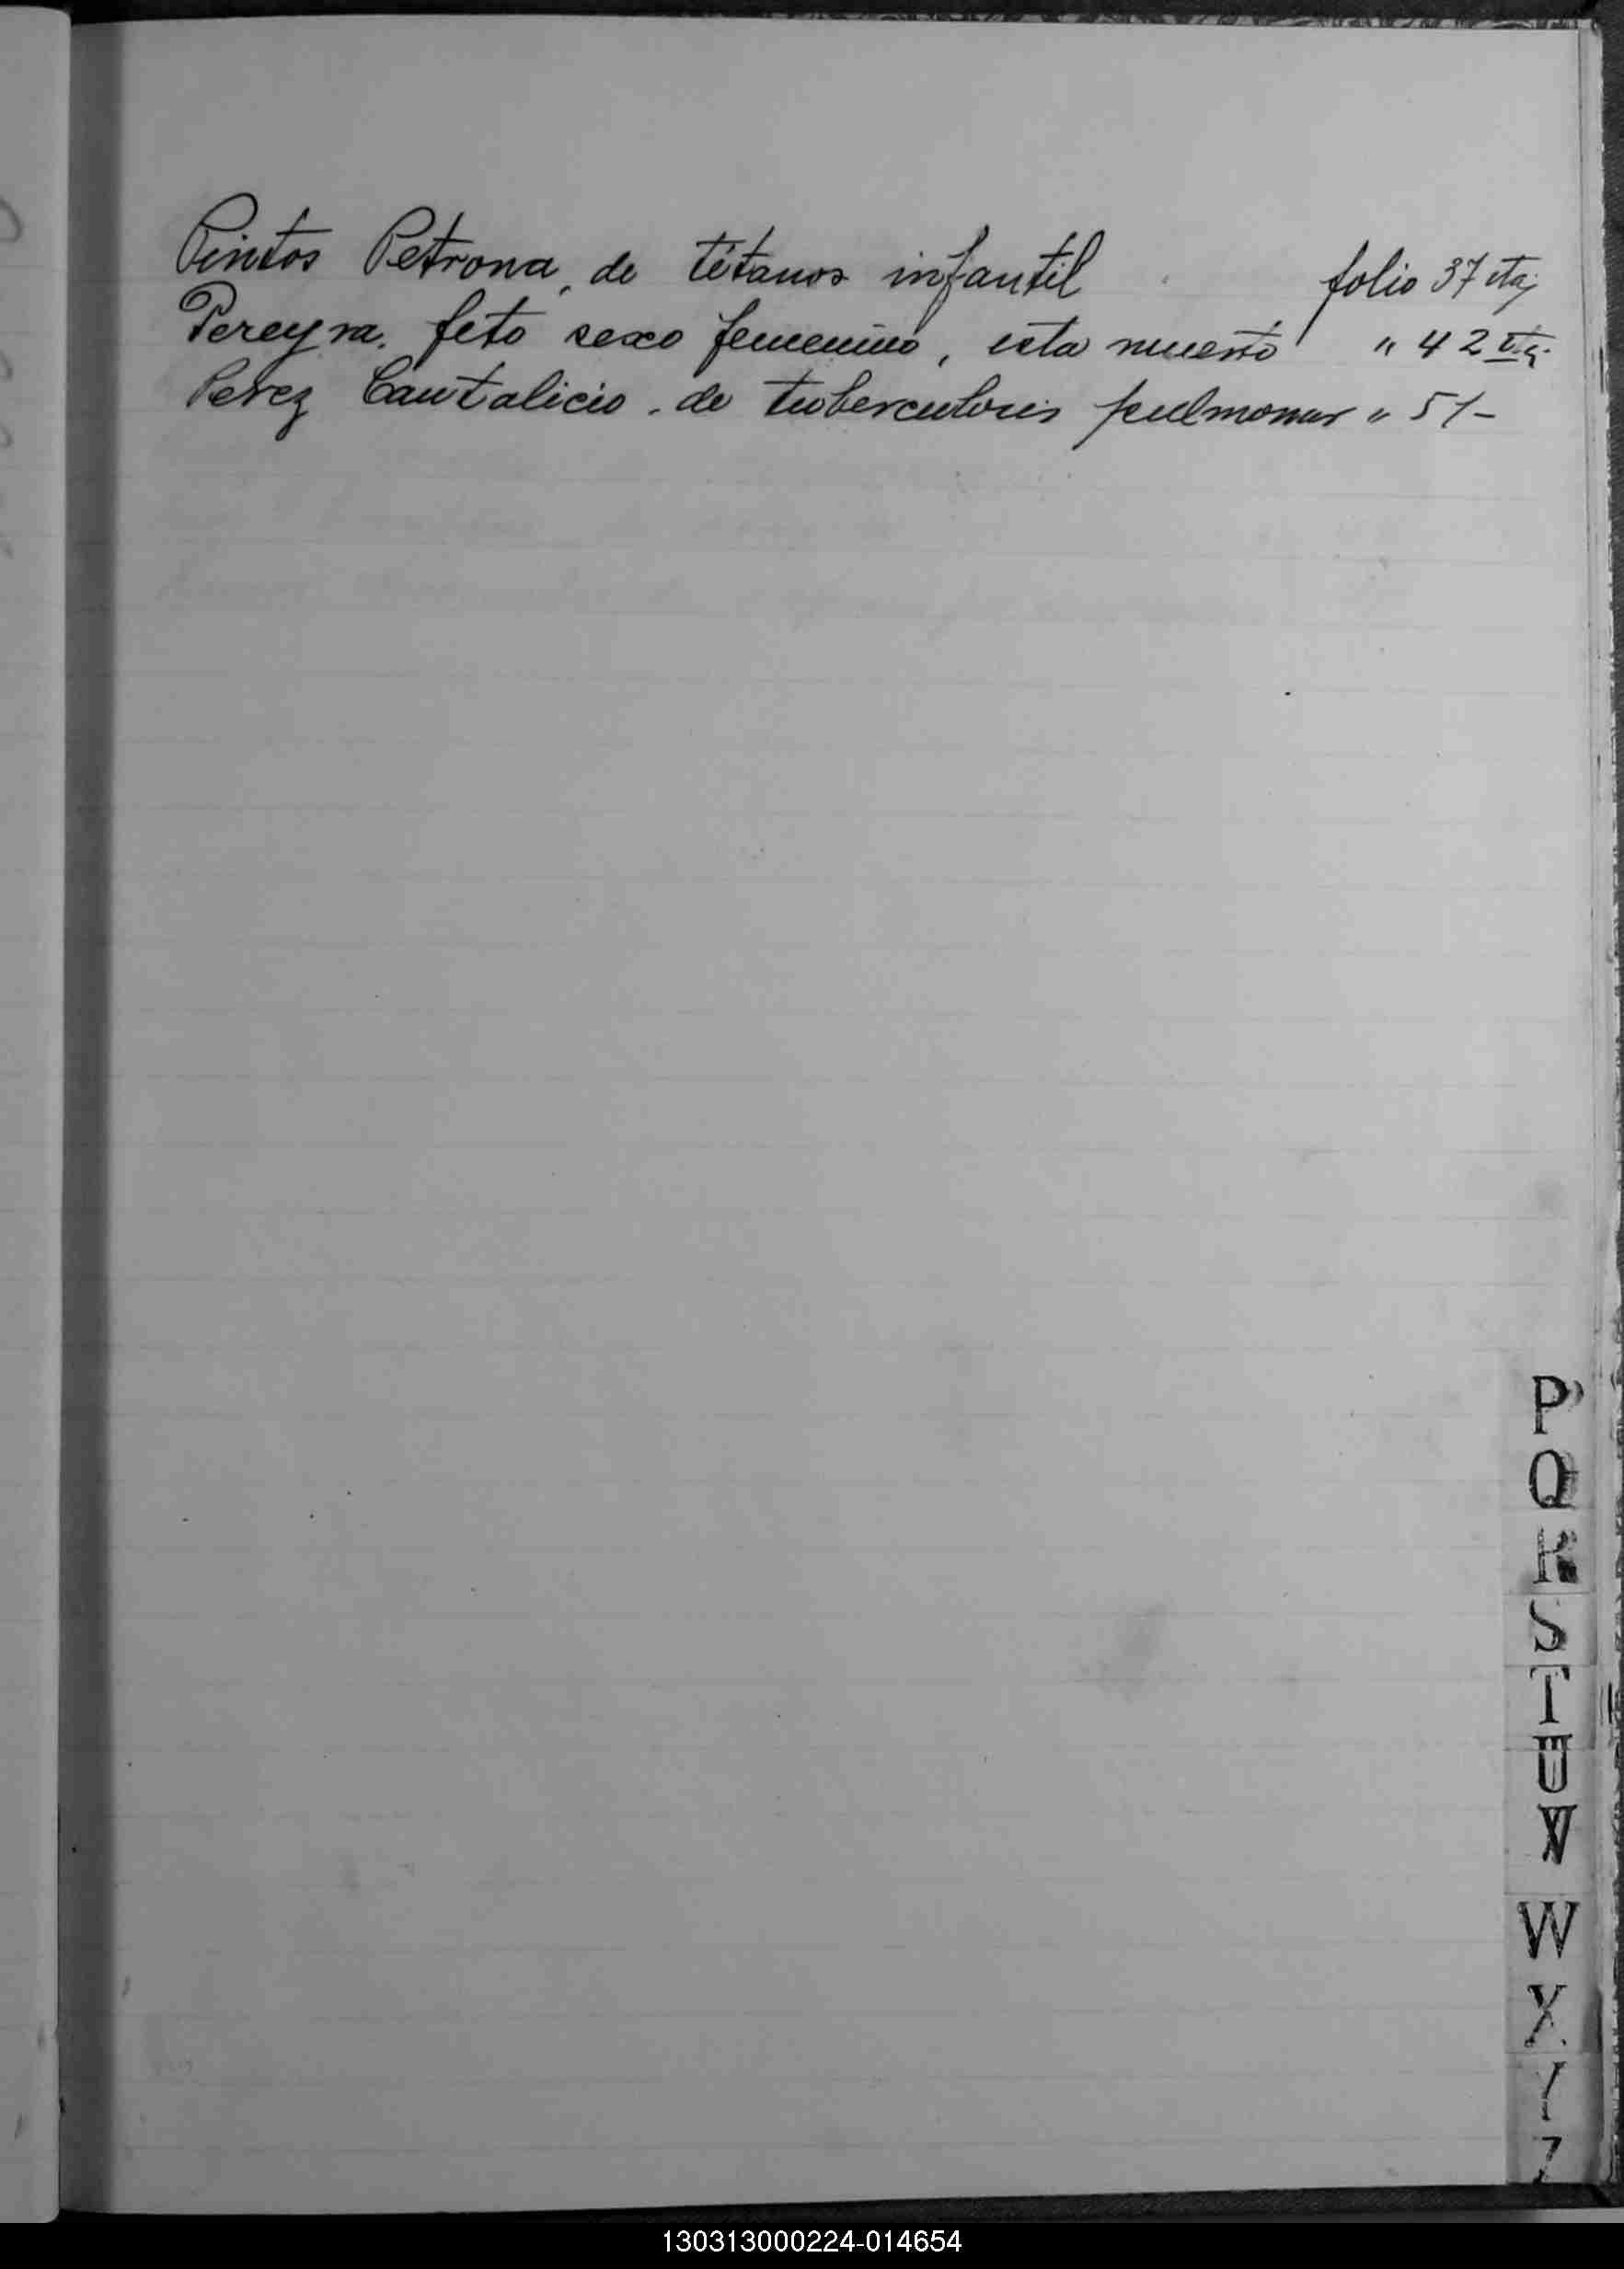 Pintos Petrona, de tétanos infantil folio 37 vta;
Pereyra, feto sexo femenino, esta muerto " 42 vta.
Perez Cantalicio, de tuberculosis pulmonar " 51-
P
Q
R
S
T
U
V
W
X
Y
Z
130313000224-014654